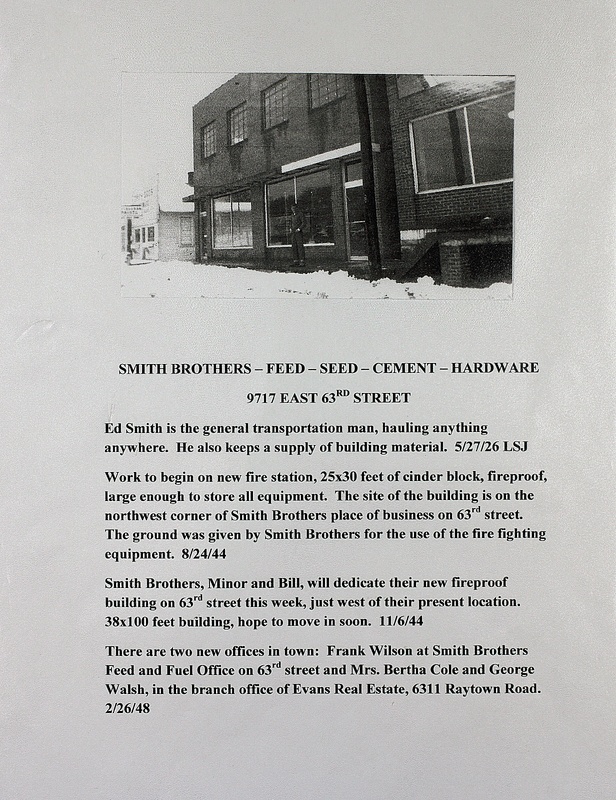 SMITH BROTHERS – FEED – SEED – CEMENT – HARDWARE
9717 EAST 63RD STREET
Ed Smith is the general transportation man, hauling anything
anywhere. He also keeps a supply of building material. 5/27/26 LSJ
Work to begin on new fire station, 25x30 feet of cinder block, fireproof,
large enough to store all equipment. The site of the building is on the
northwest corner of Smith Brothers place of business on 63rd street.
The ground was given by Smith Brothers for the use of the fire fighting
equipment. 8/24/44
Smith Brothers, Minor and Bill, will dedicate their new fireproof
building on 63rd street this week, just west of their present location.
38x100 feet building, hope to move in soon. 11/6/44
There are two new offices in town: Frank Wilson at Smith Brothers
Feed and Fuel Office on 63rd street and Mrs. Bertha Cole and George
Walsh, in the branch office of Evans Real Estate, 6311 Raytown Road.
2/26/48